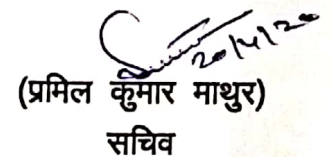 20/4/20
(प्रमिल कुमार माथुर)
सचिव